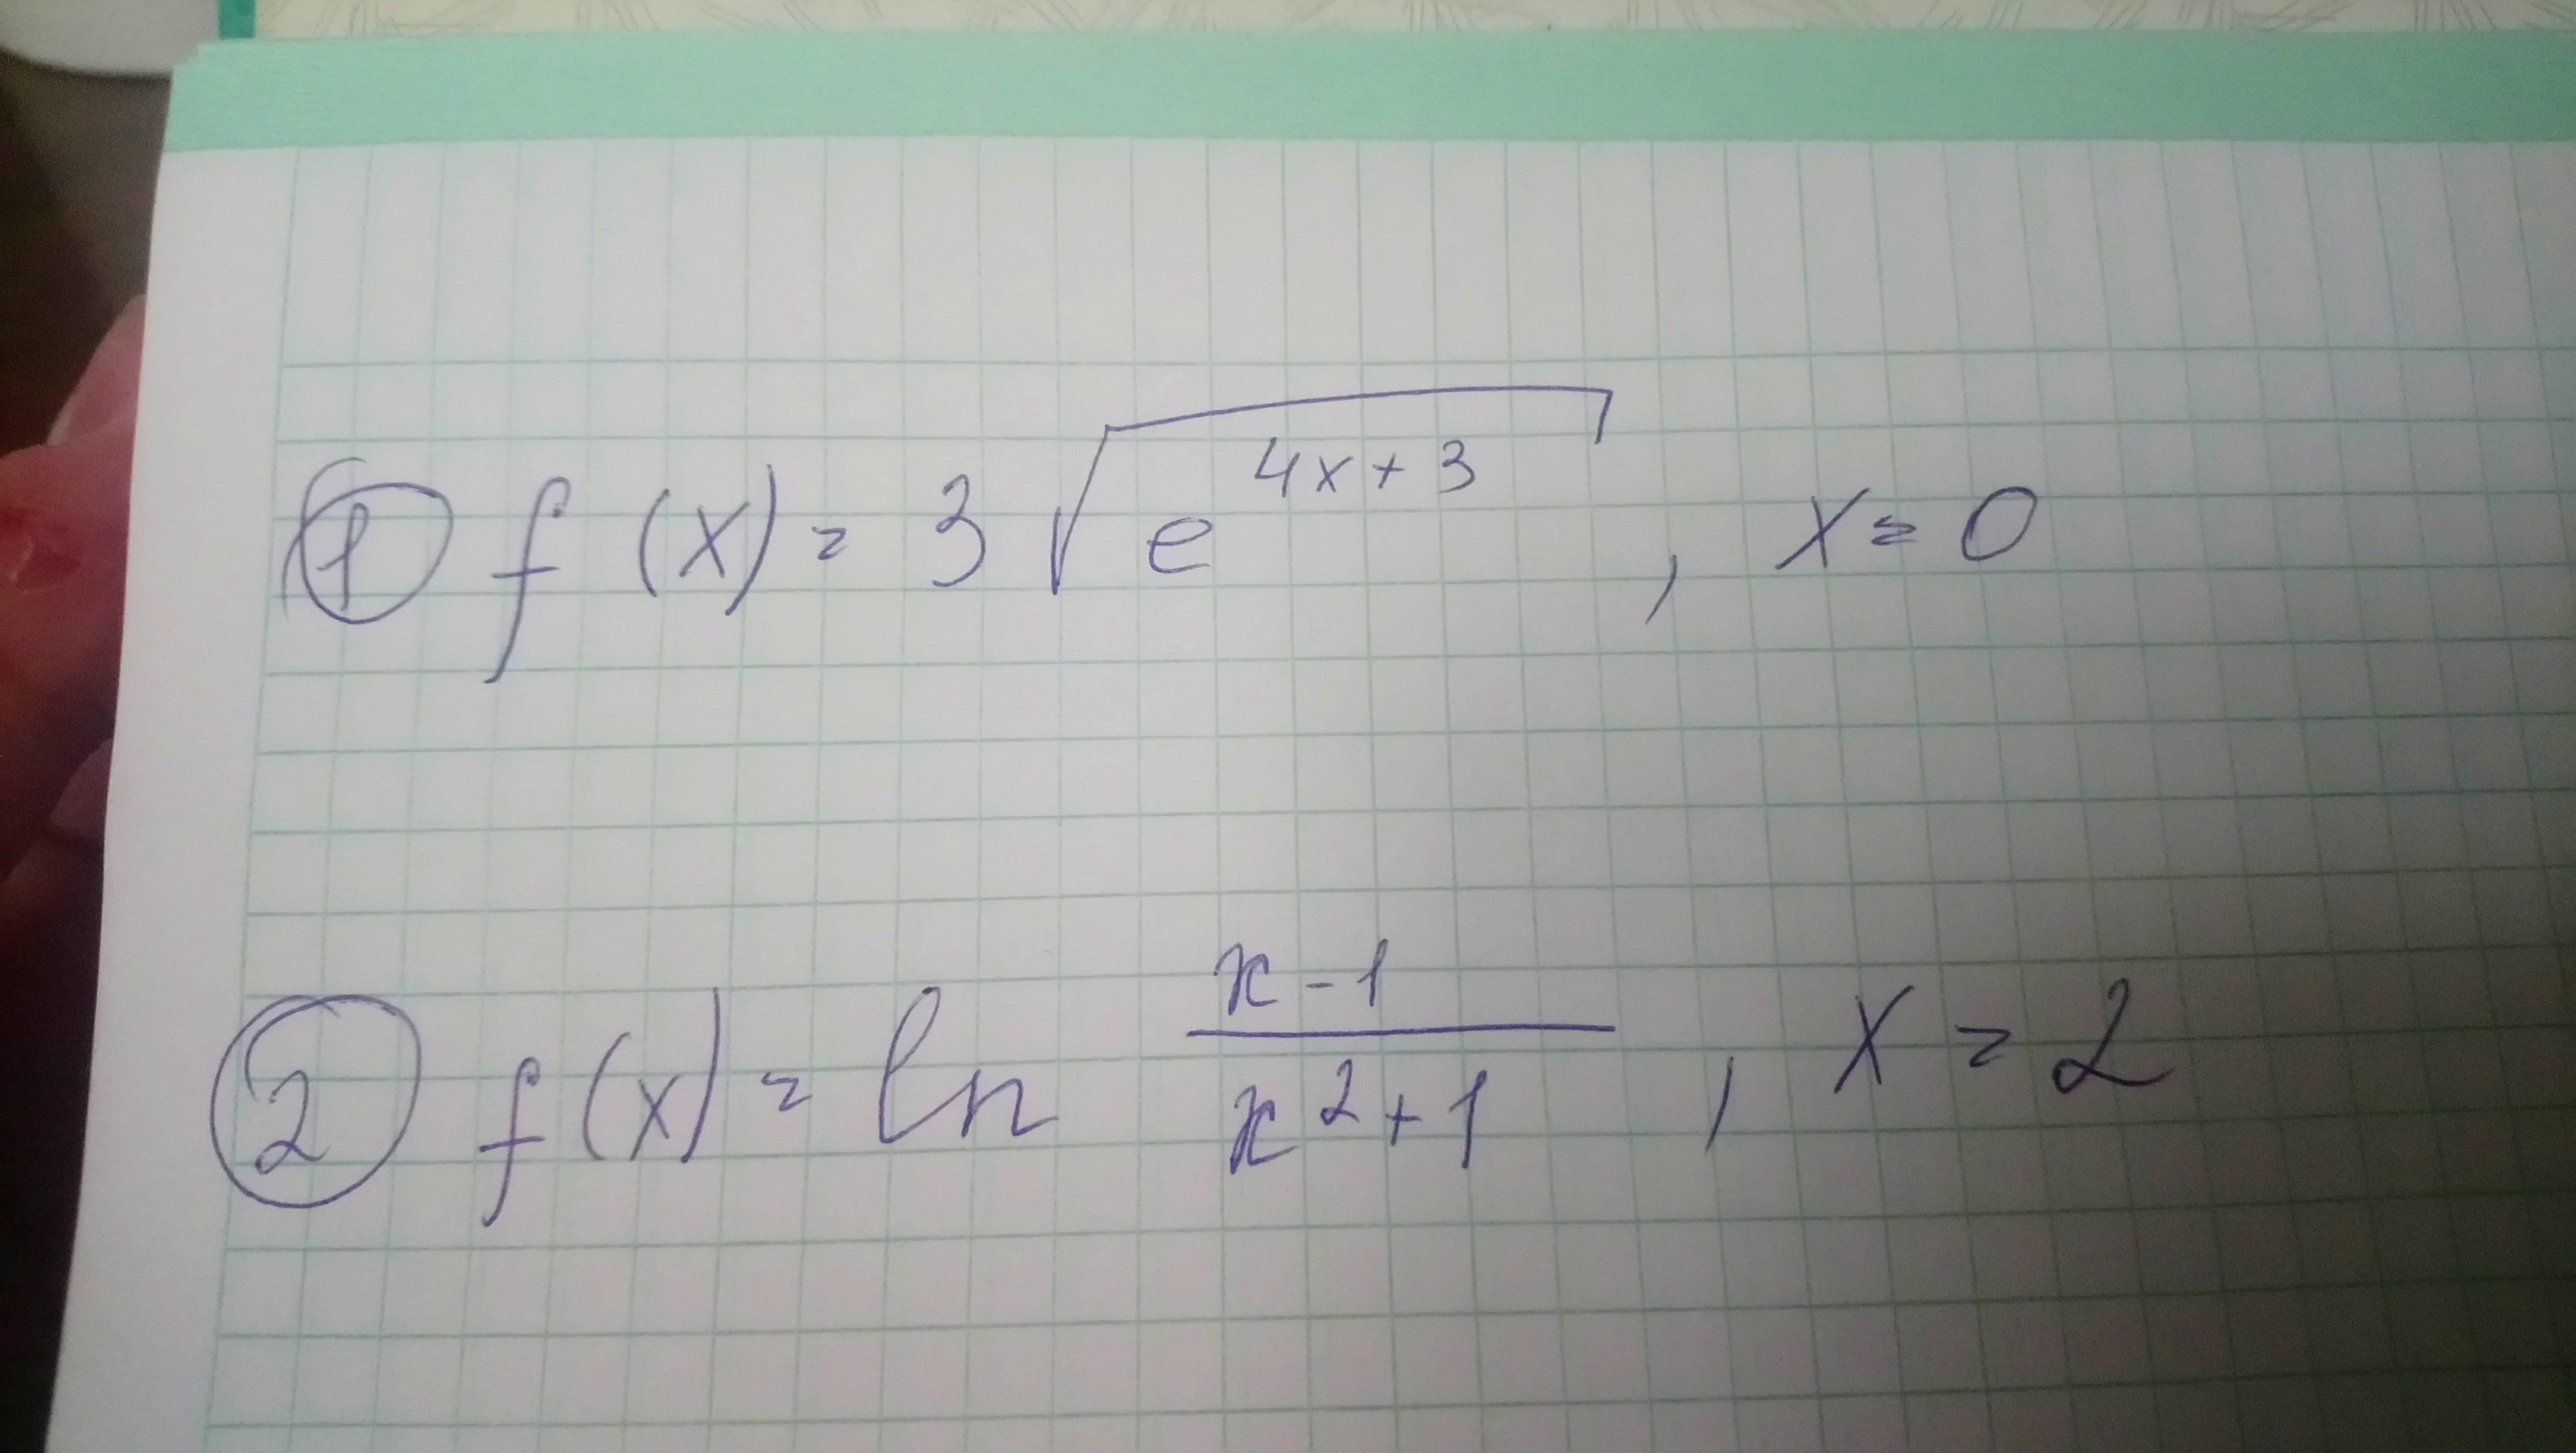 ① f(x) = 3√(e^(4x+3)), x = 0
② f(x) = ln (x-1)/(x²+1), x = 2